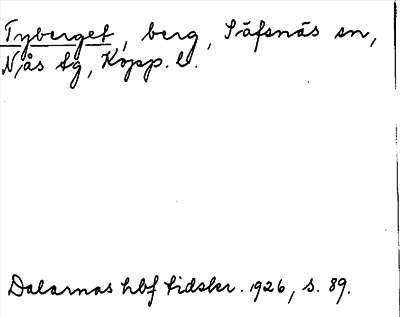 Tyberget, berg, Säfsnäs sn,
Nås tg, Kopp. l.
Dalarnas hbf tidskr. 1926, s. 89.